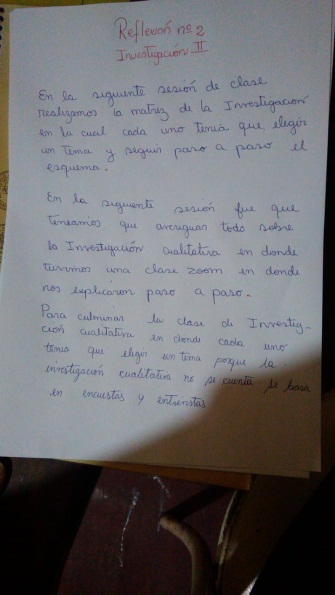 Reflexión nº 2
Investigación II
En la siguiente sesión de clase
realizamos la matriz de la Investigación
en la cual cada uno tenia que elegir
un tema y seguir paso a paso el
esquema.
En la siguiente sesión fue que
teniamos que averiguar todo sobre
la Investigación cualitativa en donde
tuvimos una clase zoom en donde
nos explicaron paso a paso.
Para culminar la clase de Investig-
ción cualitativa en donde cada uno
tenia que elegir un tema porque la
investigación cualitativa no se cuenta se basa
en encuestas y entrevistas